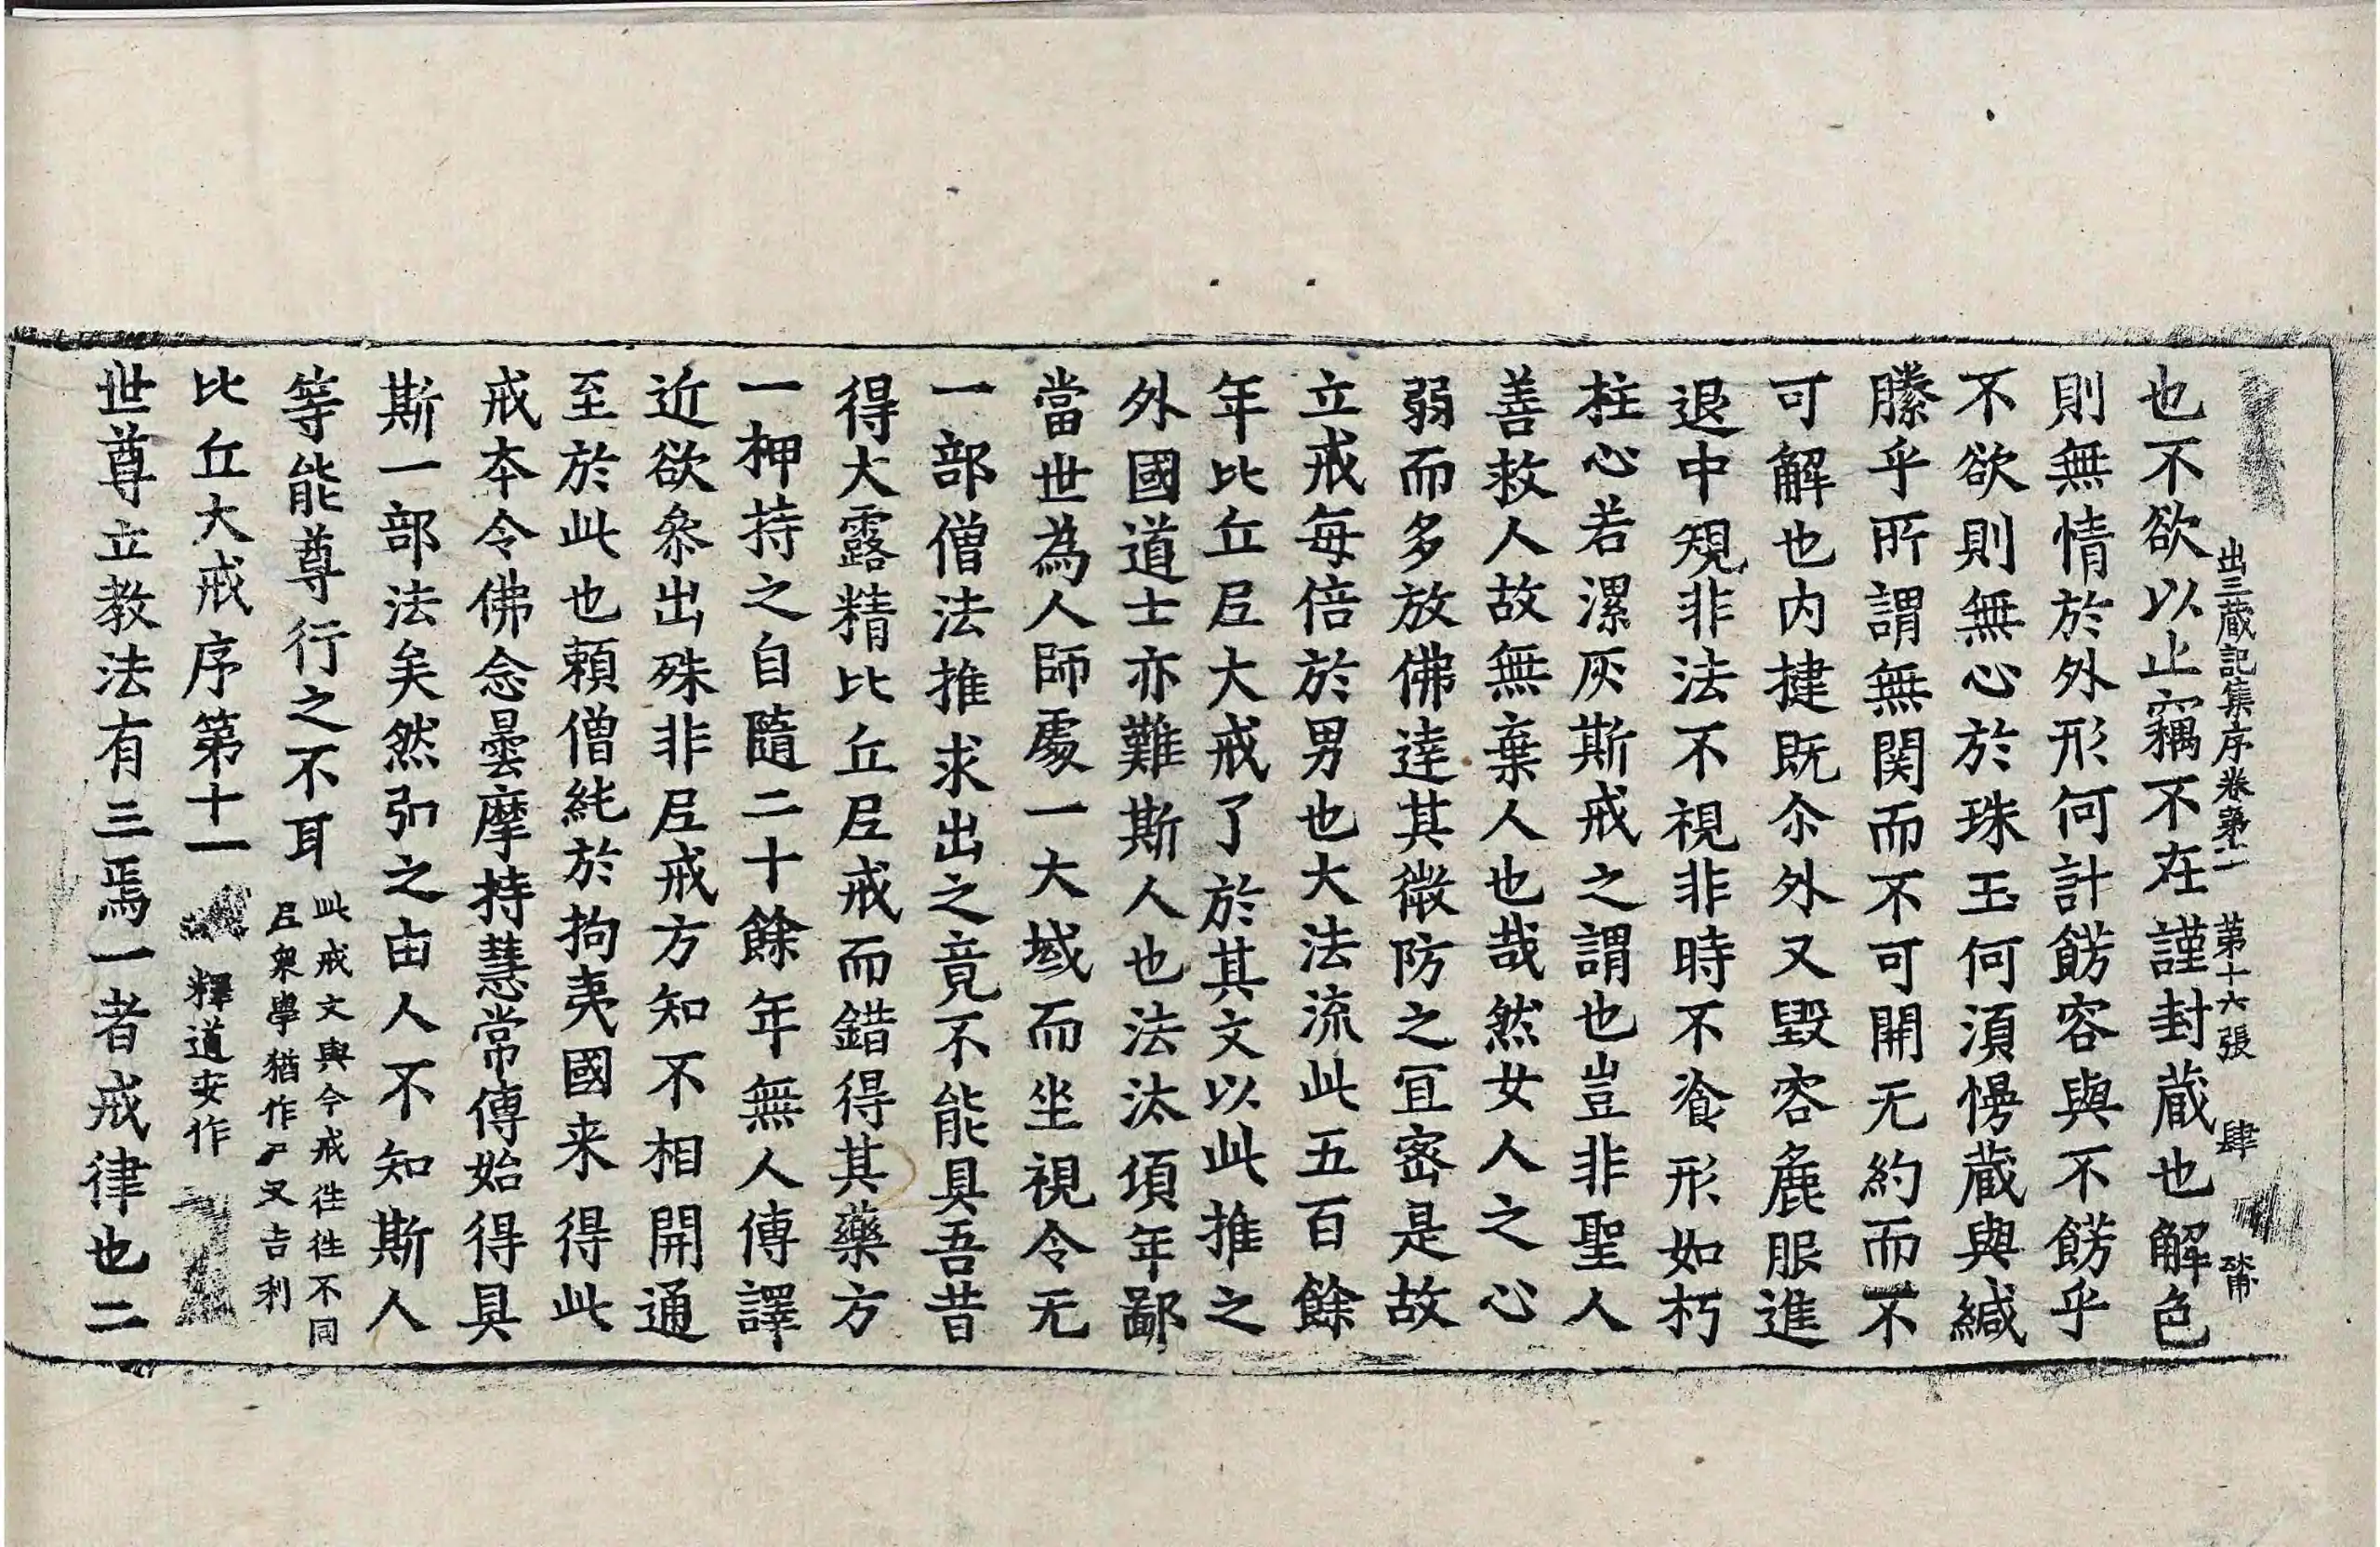 出三藏記集序卷第十一 第十六張 肆
也不欲以止竊不在謹封藏也解色
則無情於外形何計餝容與不餝乎
不欲則無心於珠玉何湏慢藏與緘
縢乎所謂無関而不可開无約而不
可解也内揵既尒外又毀容麁服進
退中䂓非法不視非時不飡形如朽
柱心若漯灰斯戒之謂也豈非聖人
善救人故無棄人也哉然女人之心
弱而多放佛達其微防之冝宻是故
立戒每倍於男也大法流此五百餘
年比丘𡰱大戒了於其文以此推之
外國道士亦難斯人也法汰項年鄙
當世為人師處一大域而坐視令无
一部僧法推求出之竟不能具吾昔
得大露精比丘𡰱戒而錯得其藥方
一柙持之自隨二十餘年無人傳譯
近欲叅出殊非𡰱戒方知不相開通
至於此也頼僧純於拘夷國来得此
戒夲令佛念曇摩持慧常傳始得具
斯一部法矣然弘之由人不知斯人
等能尊行之不耳
此戒文與今戒徃徃不同
𡰱衆學猶作尸叉吉利
比丘大戒序第十一 釋道安作
世尊立教法有三焉一者戒律也二